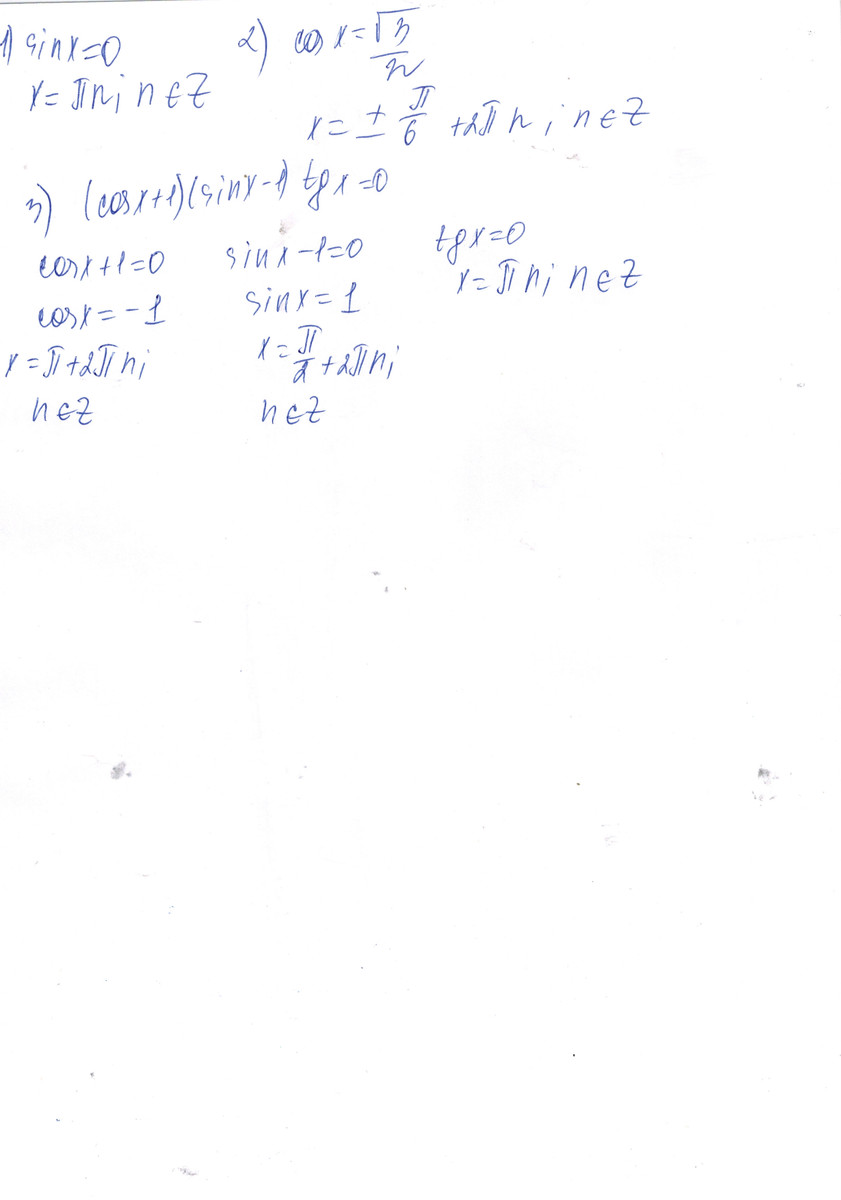 1) sin x = 0
x = πn; n ∈ Z
2) cos x = √3/2
x = ± π/6 + 2πn; n ∈ Z
3) (cos x + 1)(sin x - 1) tg x = 0
cos x + 1 = 0
cos x = -1
x = π + 2πn;
n ∈ Z
sin x - 1 = 0
sin x = 1
x = π/2 + 2πn;
n ∈ Z
tg x = 0
x = πn; n ∈ Z